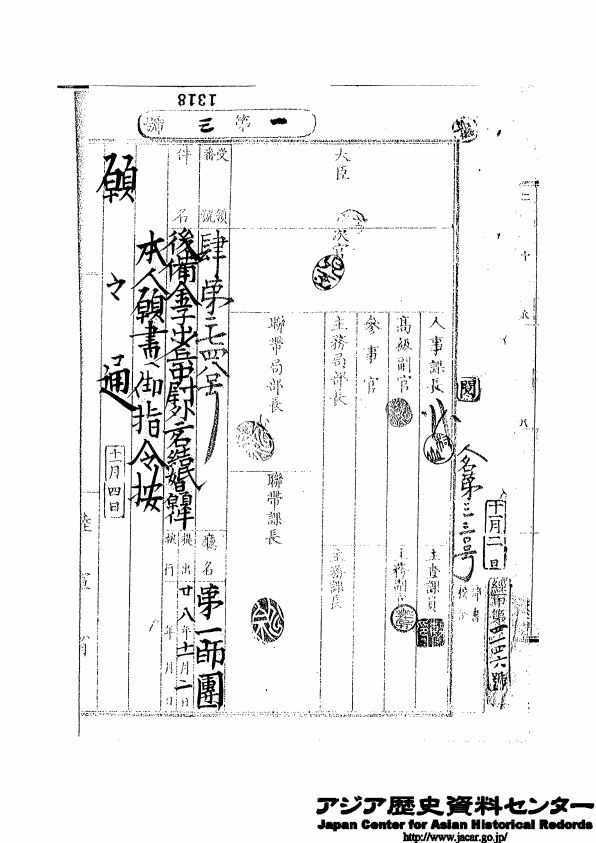 1318
第一三號
十一月二日
經甲第四二四六號
人名第三三〇号
閲
大臣
次官
人事課長
高級副官
參事官
主務局部長
聯帶局部長
聯帶課長
主査課員
主務副官
主務課長
受領番號
肆第二七四八号
件名
後備
外一名結婚
廳名
第一師團
提出
廿八年十一月二日
執行
年 月 日
本人願書ヘ御指令按
願之通
十一月四日
陸軍省
アジア歴史資料センター
Japan Center for Asian Historical Redords
http://www.jacar.go.jp/